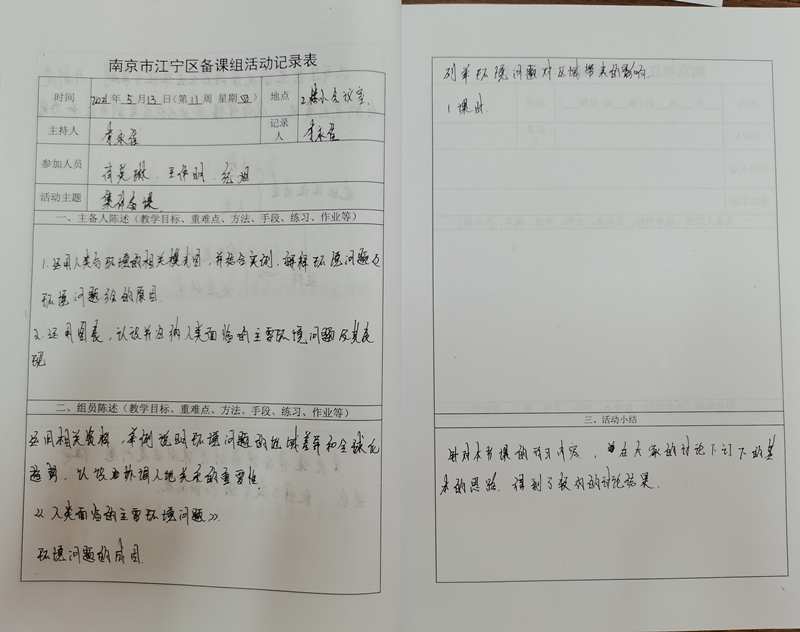 南京市江宁区备课组活动记录表
时间 2021年5月13日(第11周 星期四) 地点 2楼会议室
主持人 李永 记录人 李永
参加人员
活动主题 集体备课
一、主备人陈述(教学目标、重难点、方法、手段、练习、作业等)
1.运用人类与环境的相关模式图,并结合实例,解释环境问题及
环境问题的原因.
2.运用图表,认识并归纳人类面临的主要环境问题及其表
现
二、组员陈述(教学目标、重难点、方法、手段、练习、作业等)
运用相关资料,举例说明环境问题的区域差异和全球化
趋势,认识协调人地关系的重要性
《人类面临的主要环境问题》.
环境问题的成因.
列举环境问题对区域带来的影响.
1课时.
三、活动小结
针对本节课的学习内容,在大家的讨论下订下的基
本的思路.得到了较好的讨论结果.